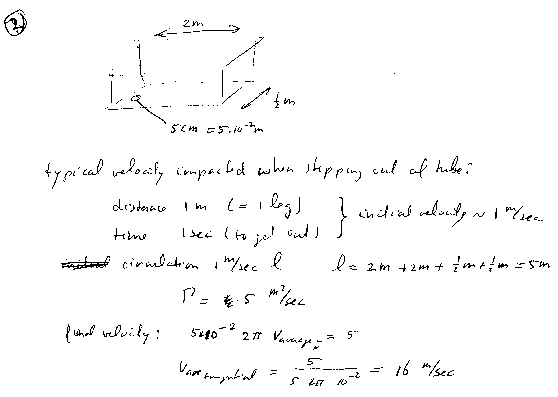 2
2m
½ m
5cm = 5·10⁻² m
typical velocity imparted when stepping out of tube:
distance 1 m (= 1 leg)
time 1 sec (to get out)
} initial velocity ~ 1 m/sec
circulation 1 m/sec l l = 2m + 2m + ½m + ½m = 5m
Γ = 5 m²/sec
final velocity: 5·10⁻² 2π V = 5
V = 5 / 5 2π 10⁻² = 16 m/sec